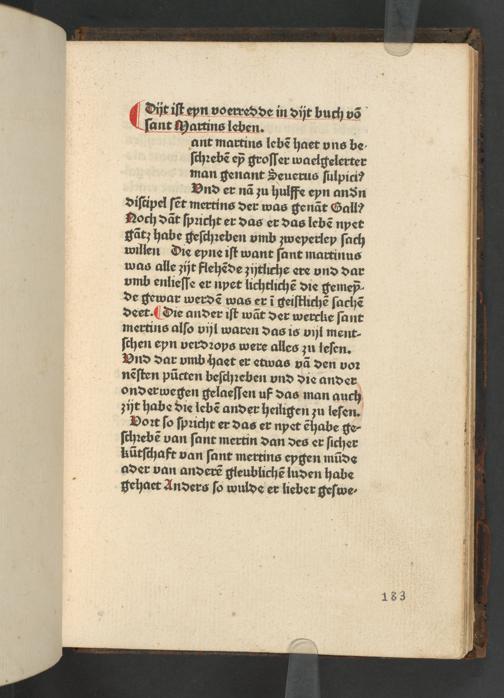 Dijt ist eyn voerredde in dijt buch vō
sant Martins leben.
ant martins lebē haet vns be-
schrebē eȳ grosser waelgelerter
man genant Seuerus sulpici?
Vnd er nā zu hulffe eyn andn̄
discipel sēt mertins der was genāt Gall?
Noch dāt spricht er das er das lebē nyet
gātz habe geschreben vmb zweyerley sach
willen Die eyne ist want sant martinus
was alle zijt flehēde zijtliche ere vnd dar
vmb enliesse er nyet lichtlichē die gemeȳ-
de gewar werdē was er ī geistlichē sachē
deet. Die ander ist wāt der wercke sant
mertins also vijl waren das is vijl ment-
schen eyn verdroys were alles zu lesen.
Vnd dar vmb haet er etwas vā den vor
nēsten pūcten beschreben vnd die ander
onderwegen gelaessen uf das man auch
zijt habe die lebē ander heiligen zu lesen.
Vort so spricht er das er nyet ēhabe ge-
schrebē van sant mertin dan des er sicher
kūtschaft van sant mertins eygen mūde
ader van anderē gleublichē luden habe
gehaet Anders so wulde er lieber geswe-
183